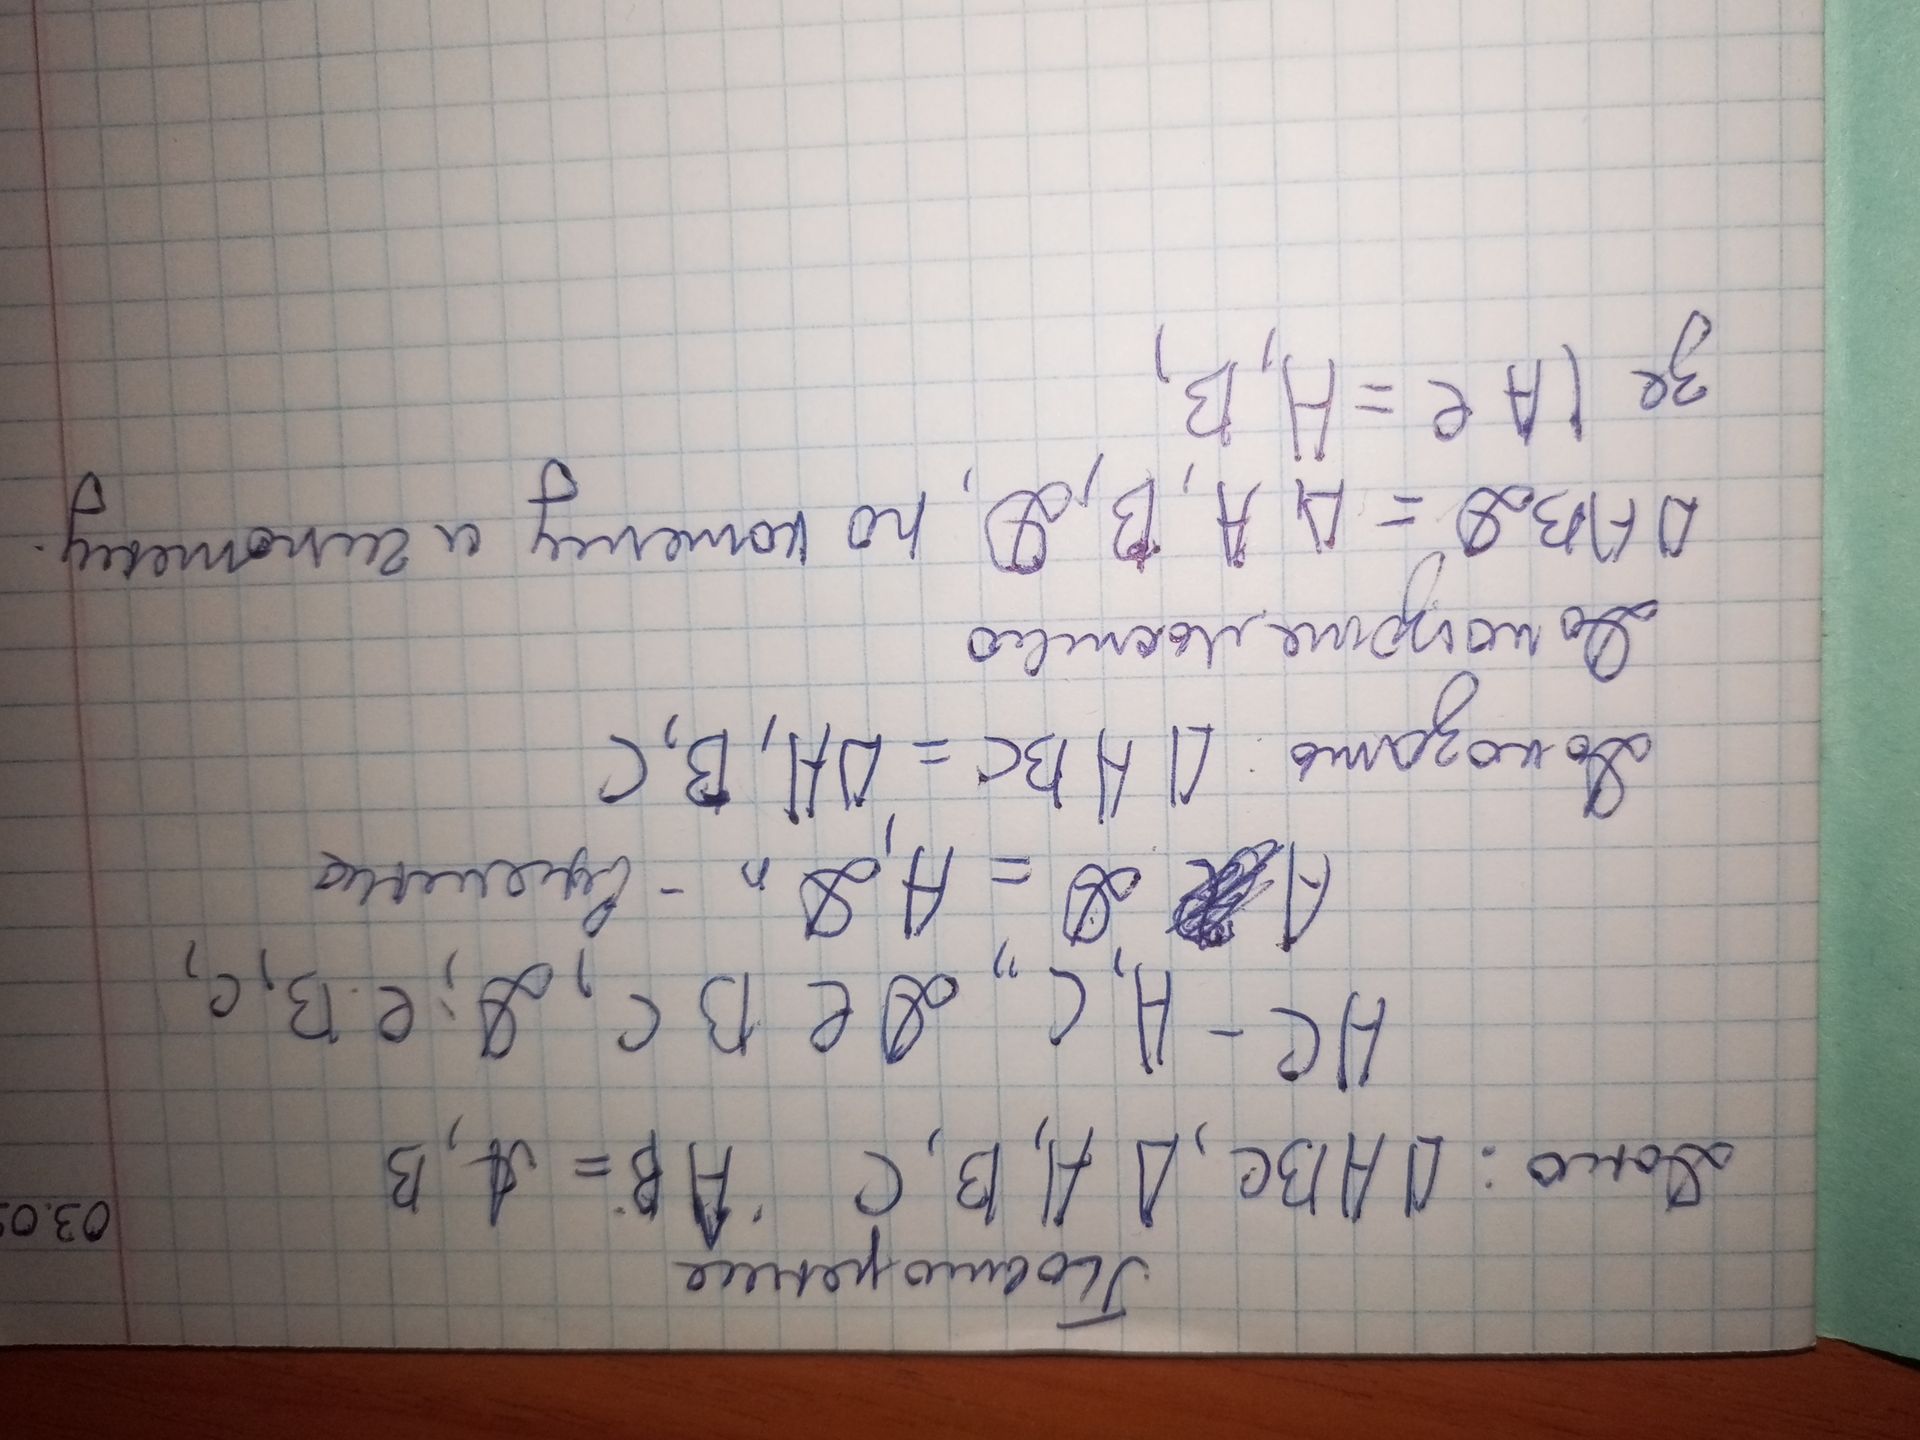 03.09
Повторение
Дано: ΔABC, ΔA₁B₁C AB = A₁B
AC - A₁C₁, D ∈ BC, D₁ ∈ B₁C₁
AD = A₁D₁ -
Доказать: ΔABC = ΔA₁B₁C
Доказательство
ΔABD = ΔA₁B₁D₁ по катету и гипотенузу.
AC = A₁B₁